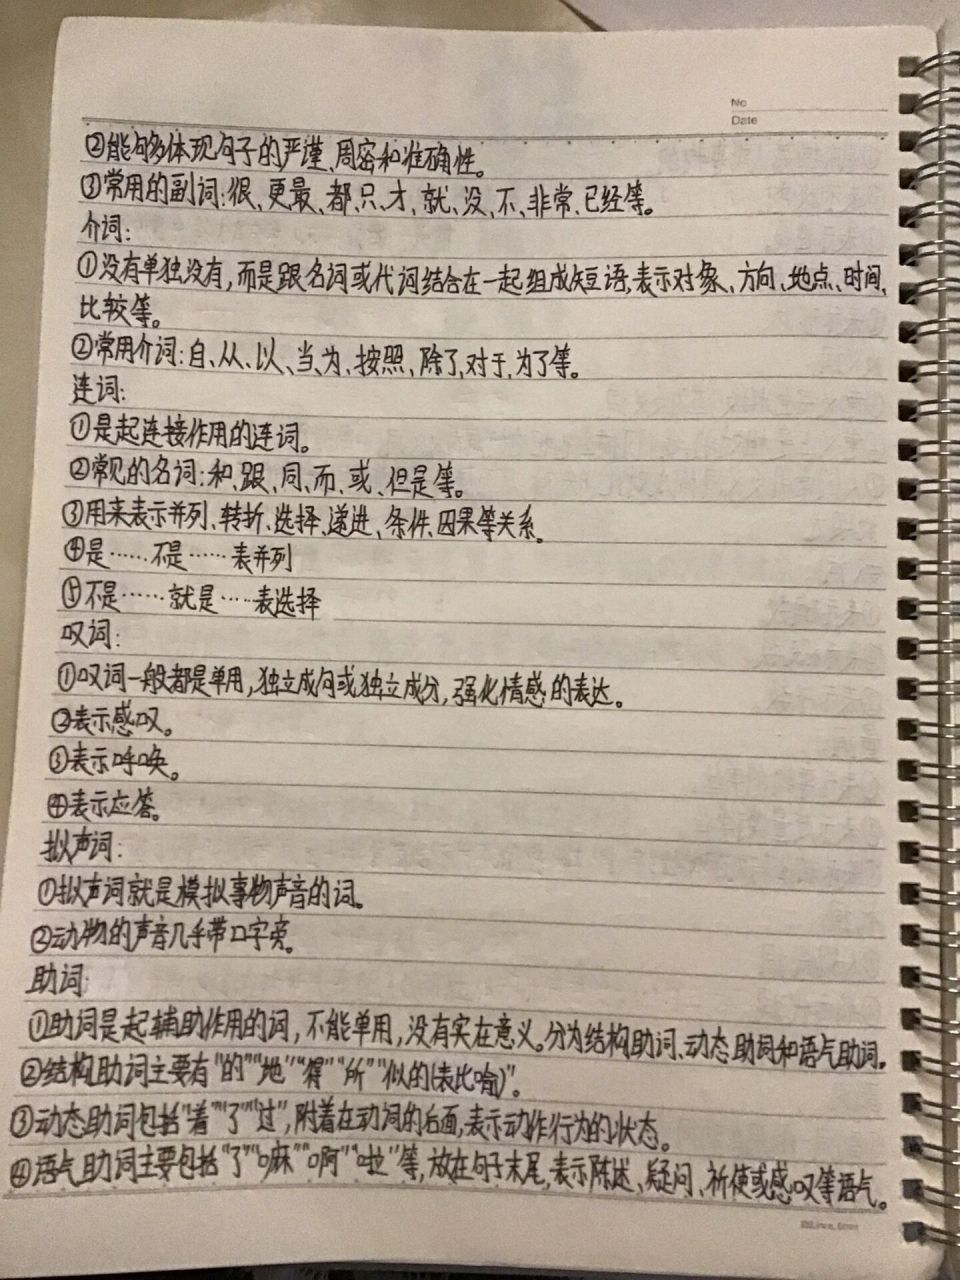 No
Date
②能够体现句子的严谨、周密和准确性。
③常用的副词:很、更、最、都、只、才、就、没、不、非常、已经等。
介词:
①没有单独没有,而是跟名词或代词结合在一起组成短语,表示对象、方向、地点、时间、
比较等。
②常用介词:自、从、以、当、为、按照、除了、对于、为了等。
连词:
①是起连接作用的连词。
②常见的名词:和、跟、同、而、或、但是等。
③用来表示并列、转折、选择、递进、条件、因果等关系。
④是……不是……表并列
⑤不是……就是……表选择
叹词:
①叹词一般都是单用,独立成句或独立成分,强化情感的表达。
②表示感叹。
③表示呼唤。
④表示应答。
拟声词:
①拟声词就是模拟事物声音的词。
②动物的声音几乎带口字旁。
助词:
①助词是起辅助作用的词,不能单用,没有实在意义。分为结构助词、动态助词和语气助词。
②结构助词主要有"的""地""得""所""似的(表比喻)"。
③动态助词包括"着""了""过",附着在动词的后面,表示动作行为的状态。
④语气助词主要包括"了""嘛""啊""啦"等,放在句子末尾,表示陈述、疑问、祈使或感叹等语气。